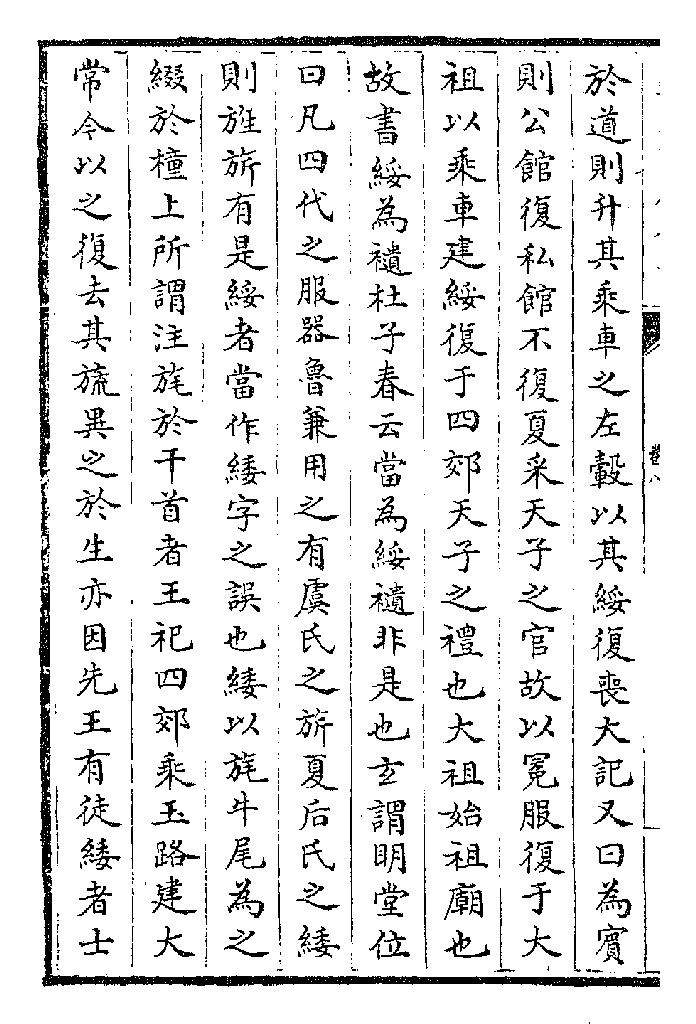 於道則升其乘車之左轂以其綏復喪大記又曰為賓
則公館復私館不復夏采天子之官故以冕服復于大
祖以乘車建綏復于四郊天子之禮也大祖始祖廟也
故書綏為䙡杜子春云當為綏䙡非是也玄謂明堂位
曰凡四代之服器魯兼用之有虞氏之旂夏后氏之緌
則旌旂有是綏者當作緌字之誤也緌以旄牛尾為之
綴於橦上所謂注旄於干首者王祀四郊乘玉路建大
常今以之復去其旒異之於生亦因先王有徒緌者士
卷八